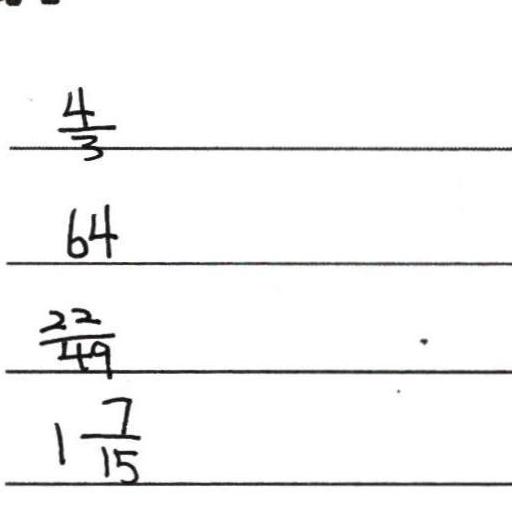 4/3
64
22/49
1 7/15